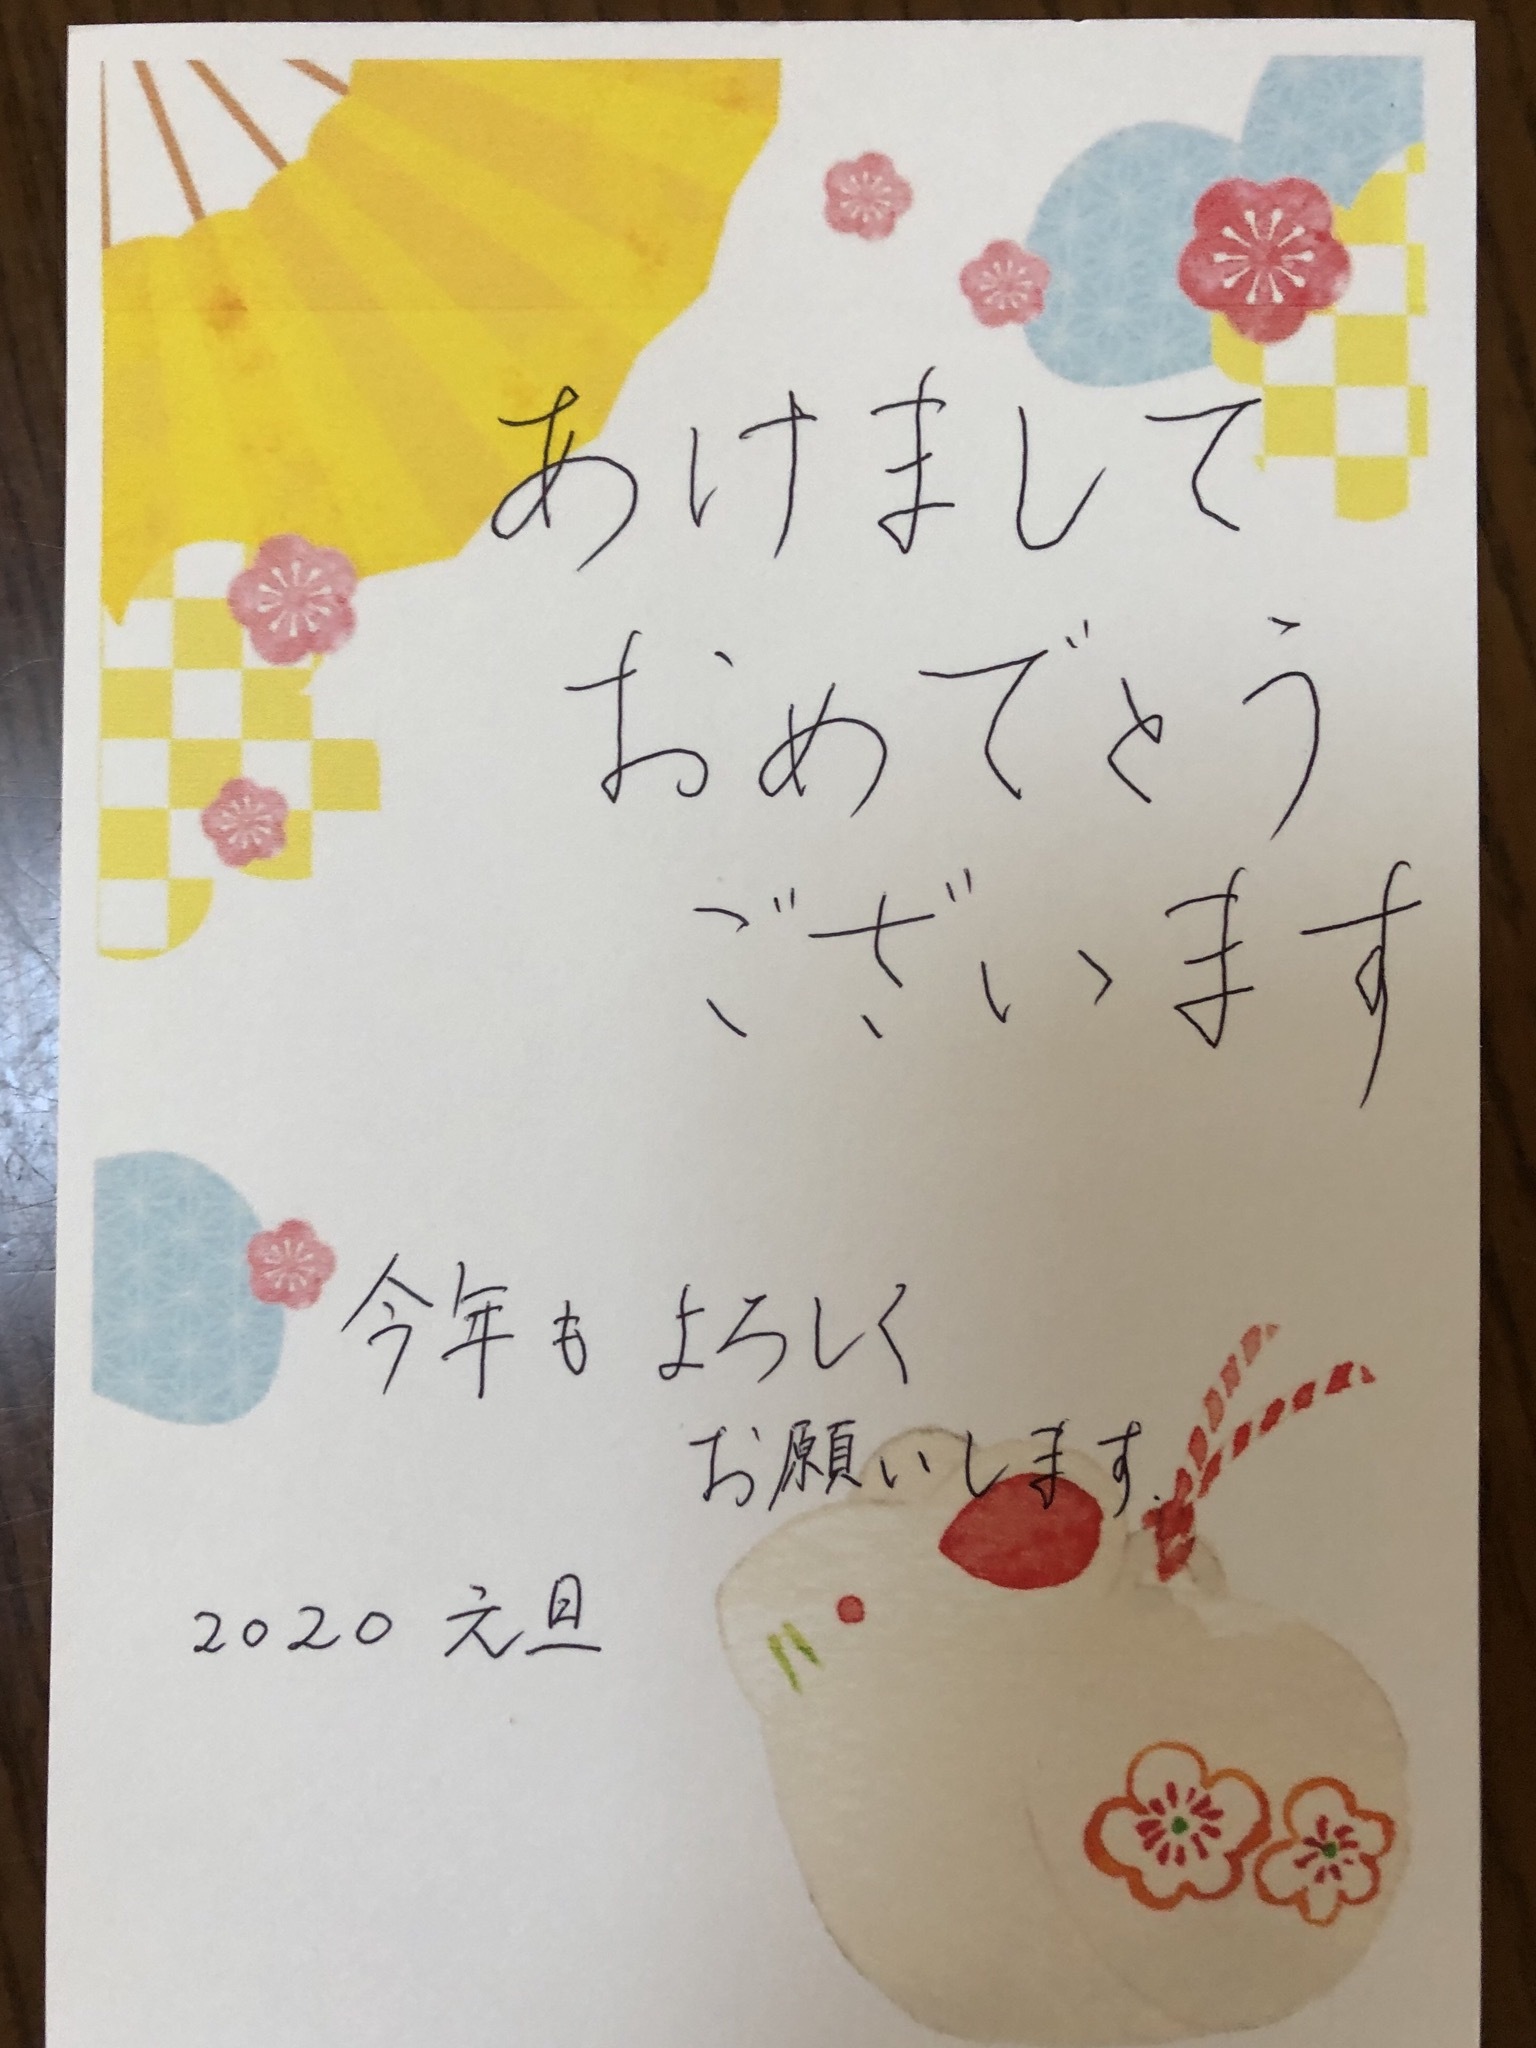 あけまして
おめでとう
ございます
今年も よろしく
お願いします.
2020 元旦